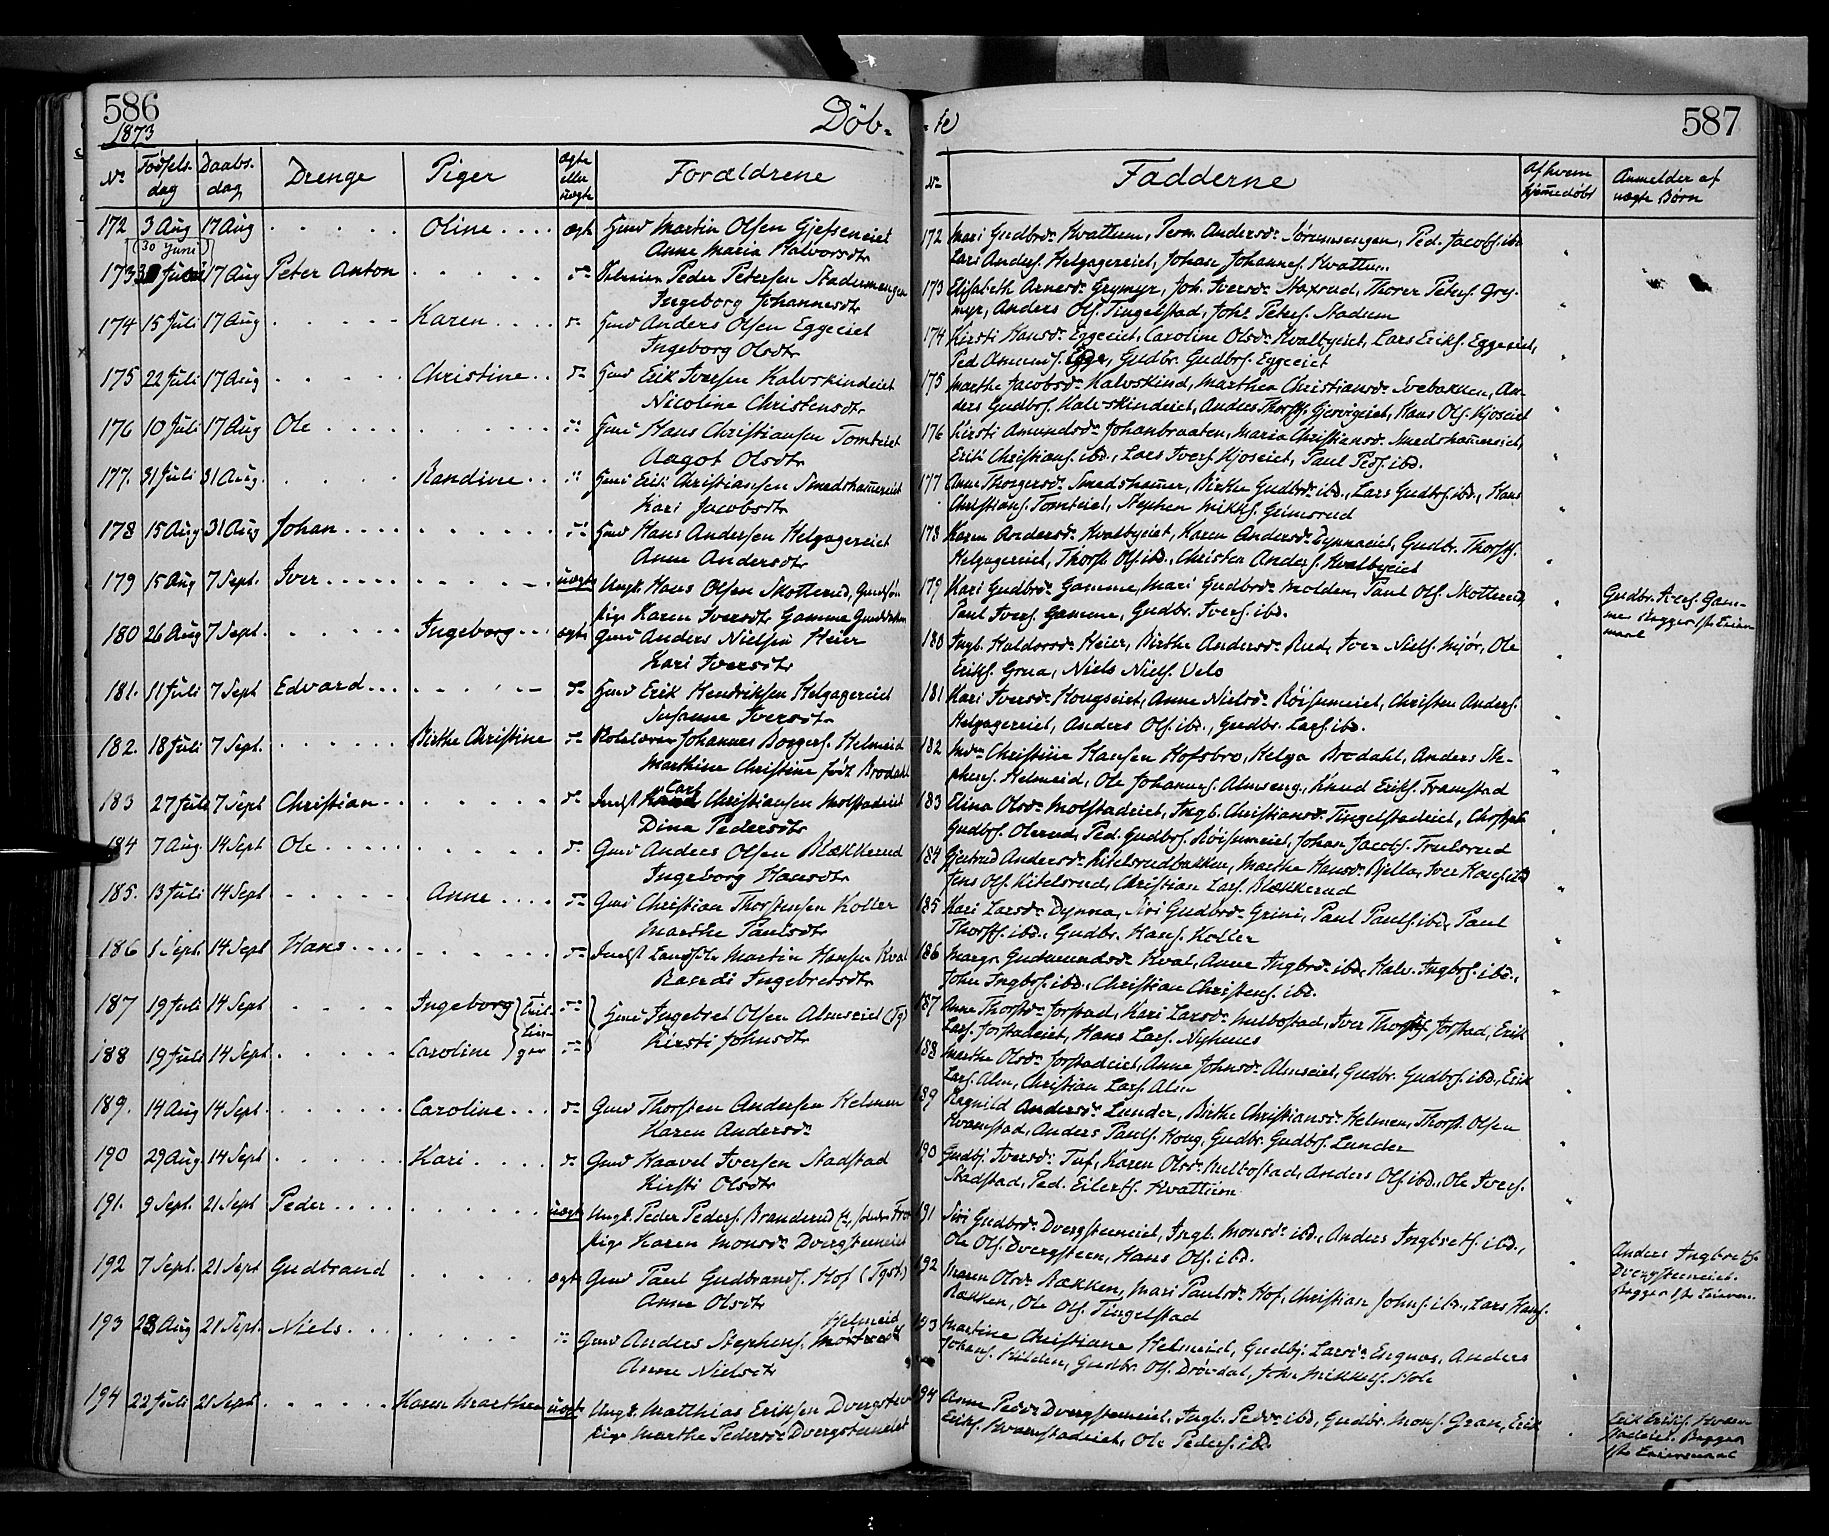 586
1873
Döb-
No
Fødsels-
dag
Daabs-
dag
Drenge
Piger
ægte
eller
uægte
Forældrene
172 3 Aug 17 Aug Oline ægt Gmd Martin Olsen Gjefseneiet
Anne Maria Halvorsdtr
(30 Juni)
173 Juli 17 Aug Peter Anton do Peder Petersen
Ingeborg Johannesdtr
174 15 Juli 17 Aug Karen do Gmd Anders Olsen Eggeeiet
Ingeborg Olsdtr
175 22 Juli 17 Aug Christine do Gmd Erik Iversen Kalvskindeiet
Nicoline Christensdtr
176 10 Juli 17 Aug Ole do Gmd Hans Christiansen Tomteiet
Aagot Olsdtr
177. 31 Juli 31 Aug. Randine do Gmd Erik Christiansen Smedshammereiet
Kari Jacobsdtr
178 15 Aug 31 Aug Johan do Gmd Hans Andersen Helgagereiet
Anne Andersdtr
179 15 Aug 7 Sept. Iver uægte Ungk. Hans Olsen Skotterud,
Pige Karen Iversdtr Gamme
180 26 Aug 7 Sept. Ingeborg ægte Gmd Anders Nielsen Heier
Kari Iversdtr
181. 11 Juli 7 Sept Edvard do Gmd Erik Hendriksen Helgagereiet
Susanne Iversdtr
182 18 Juli 7 Sept. Birthe Christine do Johannes Borgers. Helmeid
Marthine Christine født Brodahl
183 27 Juli 7 Sept Christian do Indst Carl Christiansen Molstadeiet
Dina Pedersdtr
184 7 Aug 14 Sept Ole do Gmd Anders Olsen Blækkerud
Ingeborg Hansdtr
185. 13 Juli 14 Sept Anne do Gmd Christian Thorstensen Koller
Marthe Paulsdtr
186 1 Sept. 14 Sept Hans do Indst Martin Hansen Kval
Randi Ingebretsdtr
187 19 Juli 14 Sept Ingeborg } Tvil- do } Gmd Ingebret Olsen Almseiet (Tg)
188 19 Juli 14 Sept Caroline } linger do } Kirsti Johnsdtr
189. 14 Aug 14 Sept Caroline do Gmd Thorsten Andersen Helmen
Karen Andersdr
190 29 Aug 14 Sept Kari do Gmd Kaavel Iversen Stadstad
Kirsti Olsdtr
191. 9 Sept. 21 Sept Peder uægte Ungk. Peder Peders. Branderud
Pige Karen Monsdr Dvergsteneiet
192 7 Sept. 21 Sept Gudbrand ægte Gmd Paul Gudbrands. Hof (Tgst.)
Anne Olsdtr
Helmeid
193 23 Aug 21 Sept. Niels do Gmd Anders Stephens.
Anne Nielsdtr
194 22 Juli 21 Sept Karen Marthea uægt Ungk. Matthias Eriksen Dvergsten
Pige Marthe Pedersdr Dvergsteneiet
-te
587
No
Fadderne
Af hvem
hjemmedøbt
Anmelder af
uægte Børn
172 Mari Gudbrdr Kvattum, Pern. Andersdr Sørumsengen, Ped. Jacobs. ibd
Lars Anders. Helgagereiet, Johan Johannes. Kvattum
173 Elisabeth Arnesdr Grymyr, Joh. Iversdr Naxrud, Thorer Peters. Gry-
myr, Anders Ols. Tingelstad, Johs Peters. Stadum
174 Kirsti Hansdr Eggeeiet, Caroline Olsdr Kvalbyeiet, Lars Eriks. Eggeeiet,
Ped. Amunds. Egge, Gudbr. Gudbrs. Eggeeiet
175 Marthe Jacobsdr Kalvskind, Marthea Christiansdr Svebakken, An-
ders Gudbrs. Kalvskindeiet, Anders Thorsts. Gjervigeiet, Hans Ols. Kjoseiet
176 Kirsti Amundsdr Johanbraaten, Maria Christiansdr Smedshammereiet,
Erik Christians. ibd., Lars Ivers. Kjoseiet, Paul Peds. ibd.
177 Anne Thorgersdr Smedshammer, Birthe Gudbrdr ibd., Lars Gudbrs. ibd., Hans
Christians. Tomteiet, Stephen Mikkels. Grimsrud
178 Karen Andersdr Kvalbyeiet, Karen Andersdr Dynnaeiet, Gudbr. Thorsts.
Helgagereiet, Thorst. Ols. ibd., Christen Anders. Kvalbyeiet
179 Kari Gudbrdr Gamme, Mari Gudbrdr Molden, Paul Ols. Skotterud,
Paul Ivers. Gamme, Gudbr. Ivers. ibd.
Gudbr. Ivers. Gam-
me
180 Ingb. Haldorsdr Heier, Birthe Andersdr Rud, Iver Niels. Mjør, Ole
Eriks. Grua, Niels Niels. Velo
181 Kari Iversdr Hougseiet, Anne Nielsdr Røisumeiet, Christen Anders.
Helgagereiet, Anders Ols. ibd., Gudbr. Lars. ibd.
182 Christine Hansen Hofsbro, Helga Brodahl, Anders Ste-
phens. Helmeid, Ole Johannes. Almseng, Knud Eriks. Framstad
183 Elina Olsdr Molstadeiet, Ingb. Christiansdr Tingelstadeiet,
Gudbrs. Olerud, Ped. Gudbrs. Røisumeiet, Johan Jacobs. Trulsrud
184 Gjertrud Andersdr Kitelsrudbakken, Marthe Hansdr Bjella, Iver Hans. ibd
Jens Ols. Kitelsrud, Christian Lars. Blækkerud
185 Kari Larsdr Dynna, Siri Gudbrdr Grini, Paul Pauls. ibd, Paul
Thorsts. ibd., Gudbr. Hans. Koller
186 Margr. Gudmundsdr Kval, Anne Ingbrdr ibd, Halv. Ingbrs. ibd.,
John Ingbrs. ibd., Christian Christens. ibd.
187 Anne Thorstdr Jorstad, Kari Larsdr Melbostad, Iver Thorsts. Jorstad, Erik
Lars. Jorstadeiet, Hans Lars. Nyhuus
188 Marthe Olsdr Jorstadeiet, Anne Johnsdr Almseiet, Gudbr. Gudbrs. ibd., Erik
Lars. Alm, Christian Lars. Alm
189 Ragnild Andersdr Lunder, Birthe Christiansdr Helmen, Thorst. Olsen
Kvamstad, Anders Pauls. Houg, Gudbr. Gudbrs. Lunder
190 Gudbj. Iversdr Tuf, Karen Olsdr Melbostad, Anders Ols. ibd., Ole Ivers.
Stadstad, Ped. Eilerts. Kvattum
191 Siri Gudbrdr Dvergsteneiet, Ingb. Monsdr ibd., Anders Ingbrets. ibd.,
Ole Ols. Dvergsteen, Hans Ols. ibd.
Anders Ingbrets.
Dvergsteneiet.
192 Maren Olsdr Rækken, Mari Paulsdr Hof, Christian Johns. ibd., Lars Hans.
Rækken, Ole Ols. Tingelstad
193 Martine Christiane Helmeid, Gudbj. Larsdr Engnæs, Anders
Johans. Kilden, Gudbr. Ols. Drøvdal, Johs Mikkels. Hole
194 Anne Pedsdr Dvergsteneiet, Ingb. Pedsdr ibd, Gudbr. Mons. Gran, Erik
Eriks. Kvamstadeiet, Ole Peders. ibd.
Erik Eriks. Kvam-
stadeiet.